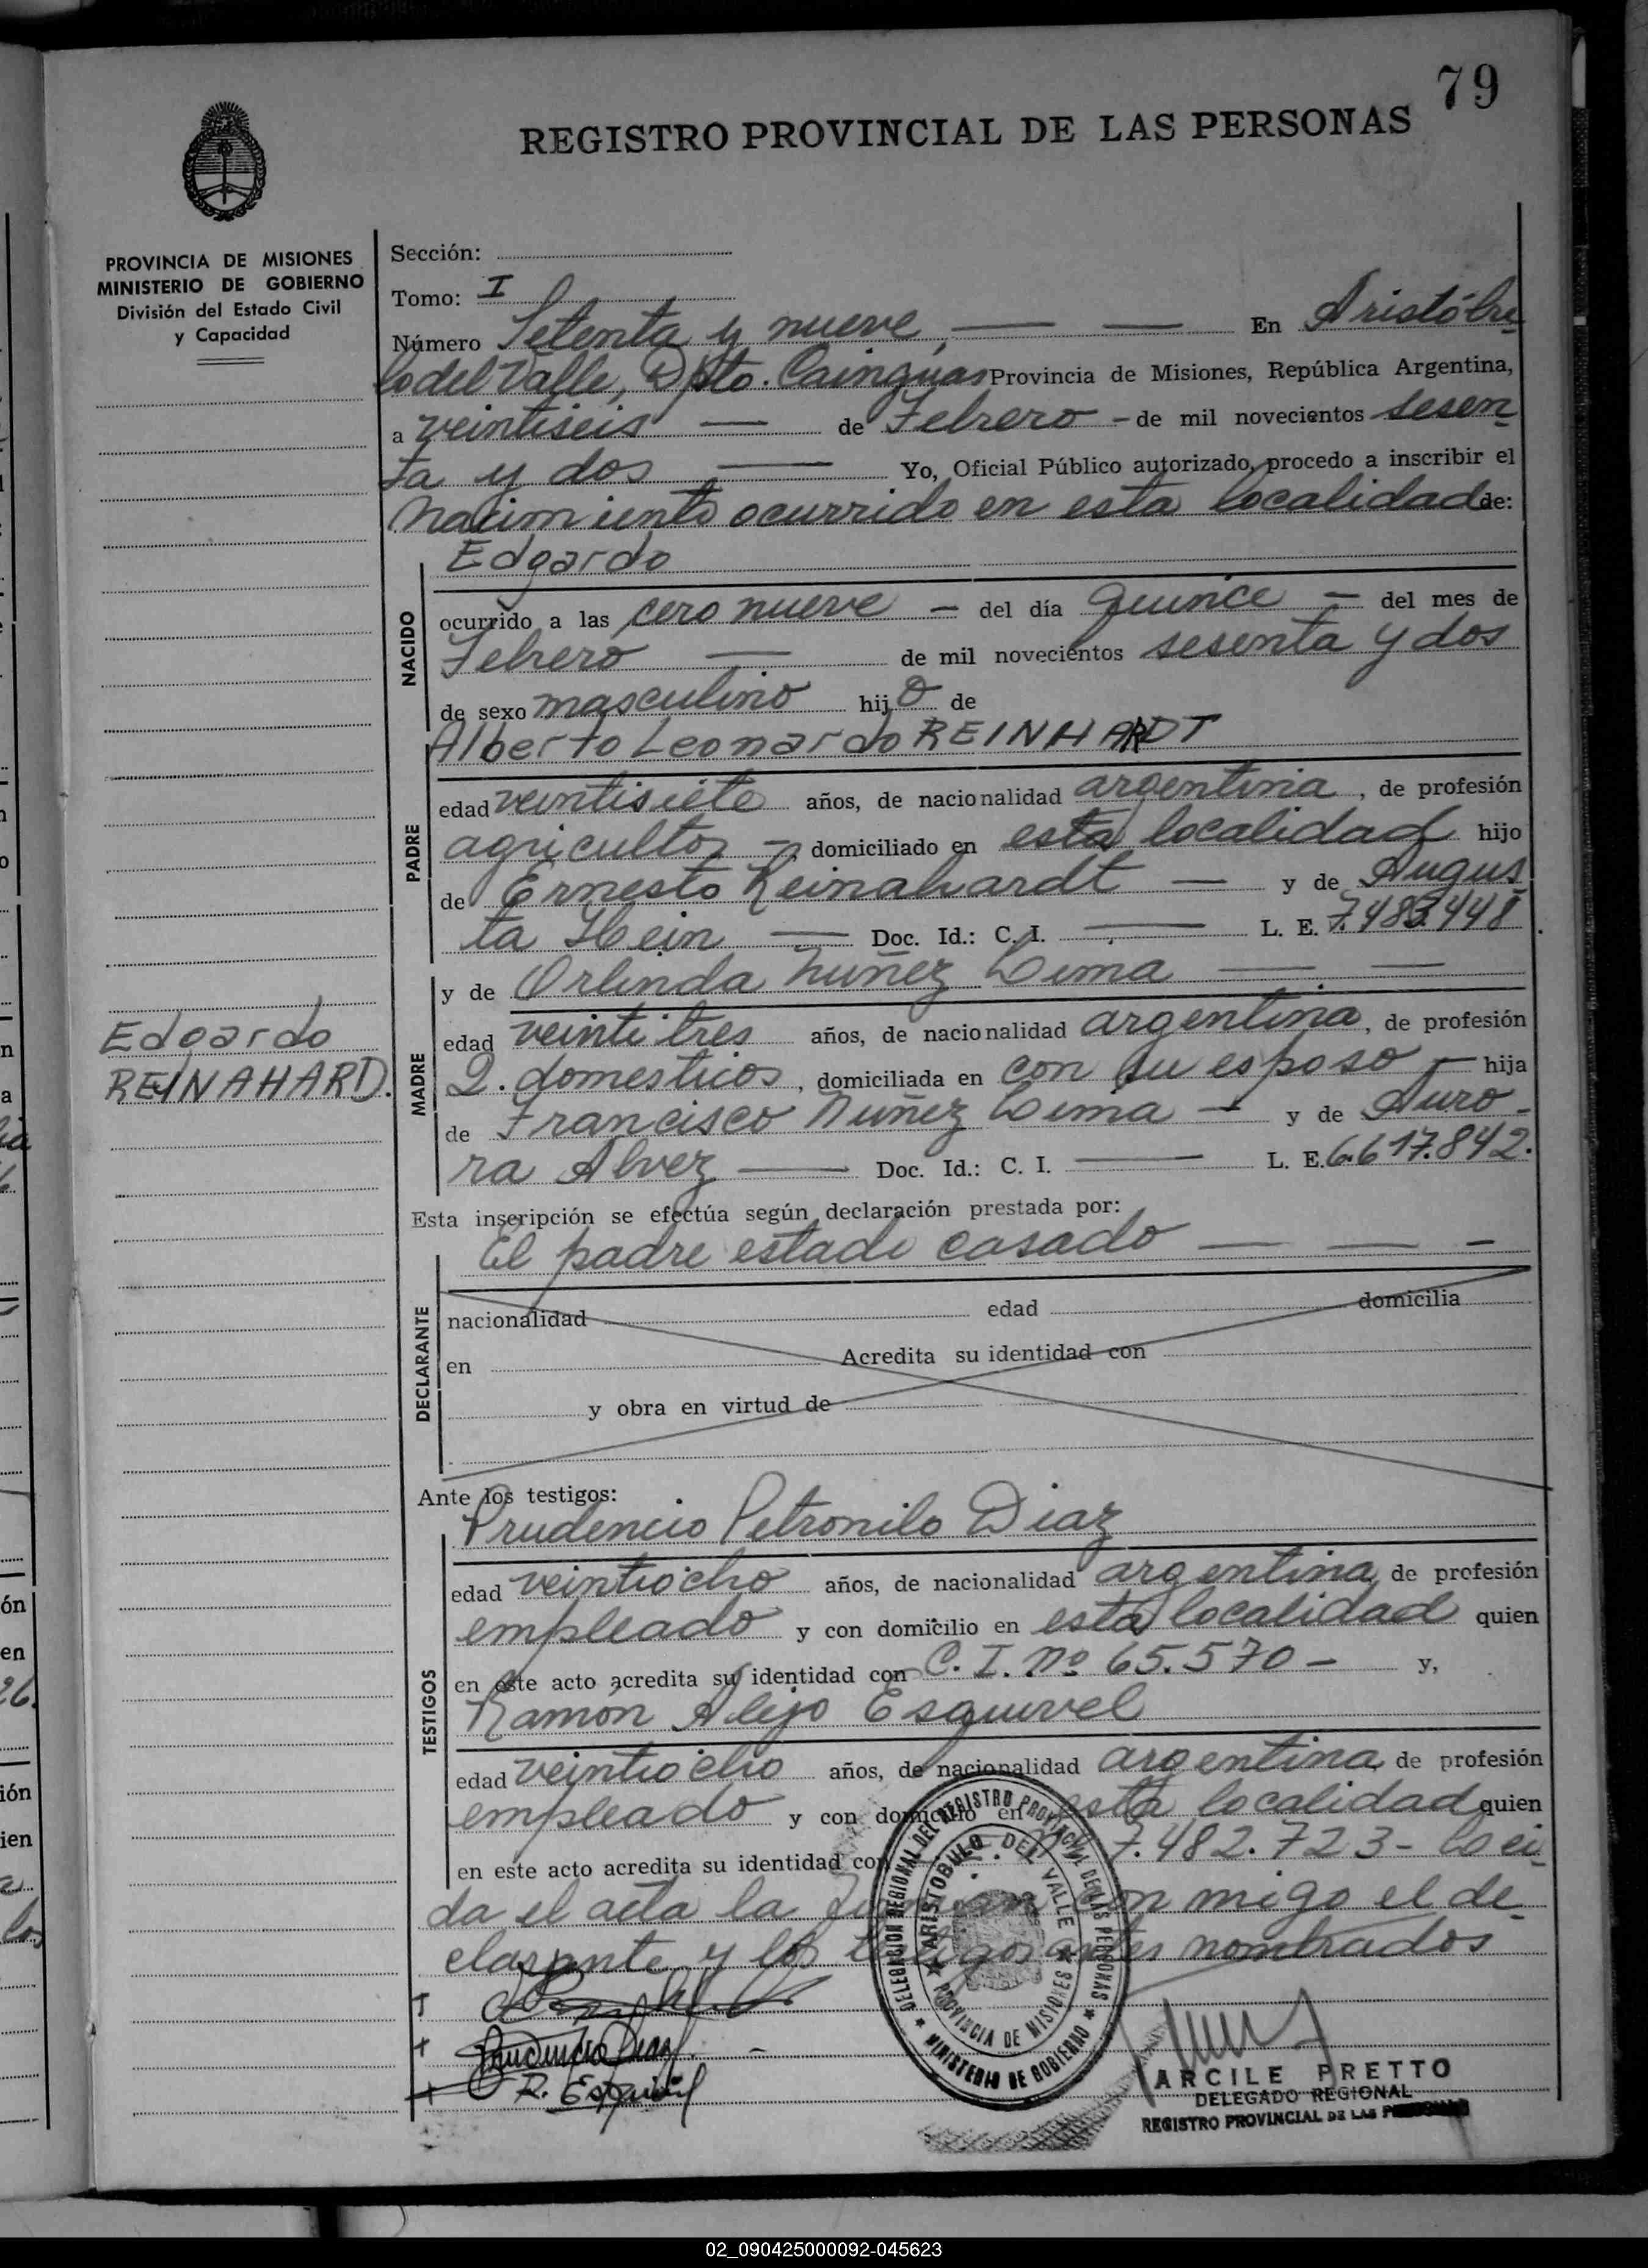 79
REGISTRO PROVINCIAL DE LAS PERSONAS
PROVINCIA DE MISIONES
MINISTERIO DE GOBIERNO
División del Estado Civil
y Capacidad
Sección:
Tomo: I
Número Setenta y nueve, — — En Aristóbu
lo del Valle, Dpto. Cainguas Provincia de Misiones, República Argentina,
a veintiseis — de Febrero - de mil novecientos sesen
ta y dos — Yo, Oficial Público autorizado, procedo a inscribir el
nacimiento ocurrido en esta localidad de:
Edgardo
NACIDO
ocurrido a las cero nueve — del día quince — del mes de
Febrero — de mil novecientos sesenta y dos
de sexo masculino hijo de
Alberto Leonardo REINHARDT
PADRE
edad veintisiete años, de nacionalidad argentina, de profesión
agricultor -, domiciliado en esta localidad hijo
de Ernesto Reinahardt — y de Augus
ta Hein — Doc. Id.: C. I. — L. E. 7.483.448
y de Orlinda Nuñez Lima — —
Edgardo
REINAHARD.
MADRE
edad veintitres años, de nacionalidad argentina, de profesión
Q. domesticos, domiciliada en con su esposo — hija
de Francisco Nuñez Lima — y de Auro-
ra Alvez — Doc. Id.: C. I. — L. E. 6.617.842.
Esta inscripción se efectúa según declaración prestada por:
El padre estado casado — — -
DECLARANTE
nacionalidad edad domicilia
en Acredita su identidad con
y obra en virtud de
Ante los testigos:
Prudencio Petronilo Diaz
TESTIGOS
edad veintiocho años, de nacionalidad argentina, de profesión
empleado y con domicilio en esta localidad quien
en este acto acredita su identidad con C. I. Nº 65.570 - y,
Ramón Alejo Esquivel
edad veintiocho años, de nacionalidad argentina, de profesión
empleado y con domicilio en esta localidad quien
en este acto acredita su identidad con 7.482.723- Lei
da el acta la firman con migo el de
clarante y los testigos antes nombrados
Prudencio Diaz
R. Esquivel
DELEGACION REGIONAL DEL REGISTRO PROVINCIAL DE LAS PERSONAS
★ MINISTERIO DE GOBIERNO ★
★ ARISTOBULO DEL VALLE ★
PROVINCIA DE MISIONES
ARCILE PRETTO
DELEGADO REGIONAL
REGISTRO PROVINCIAL DE LAS PERSONAS
02_090425000092-045623